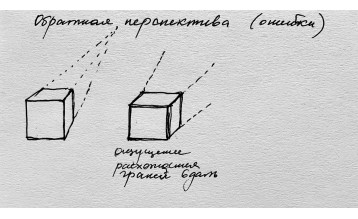 Обратная перспектива (ошибки)
ощущение
расхождения
граней вдаль